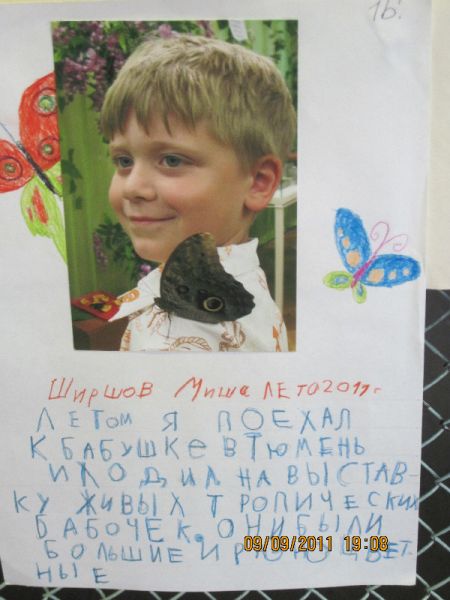 1б.
Ширшов Миша лето 2011 г
ЛЕТОМ Я ПОЕХАЛ
К БАБУШКЕ В ТЮМЕНЬ
И ХОДИЛ НА ВЫСТАВ-
КУ ЖИВЫХ ТРОПИЧЕСКИХ
БАБОЧЕК. ОНИ БЫЛИ
БОЛЬШИЕ И
НЫЕ
09/09/2011 19:08